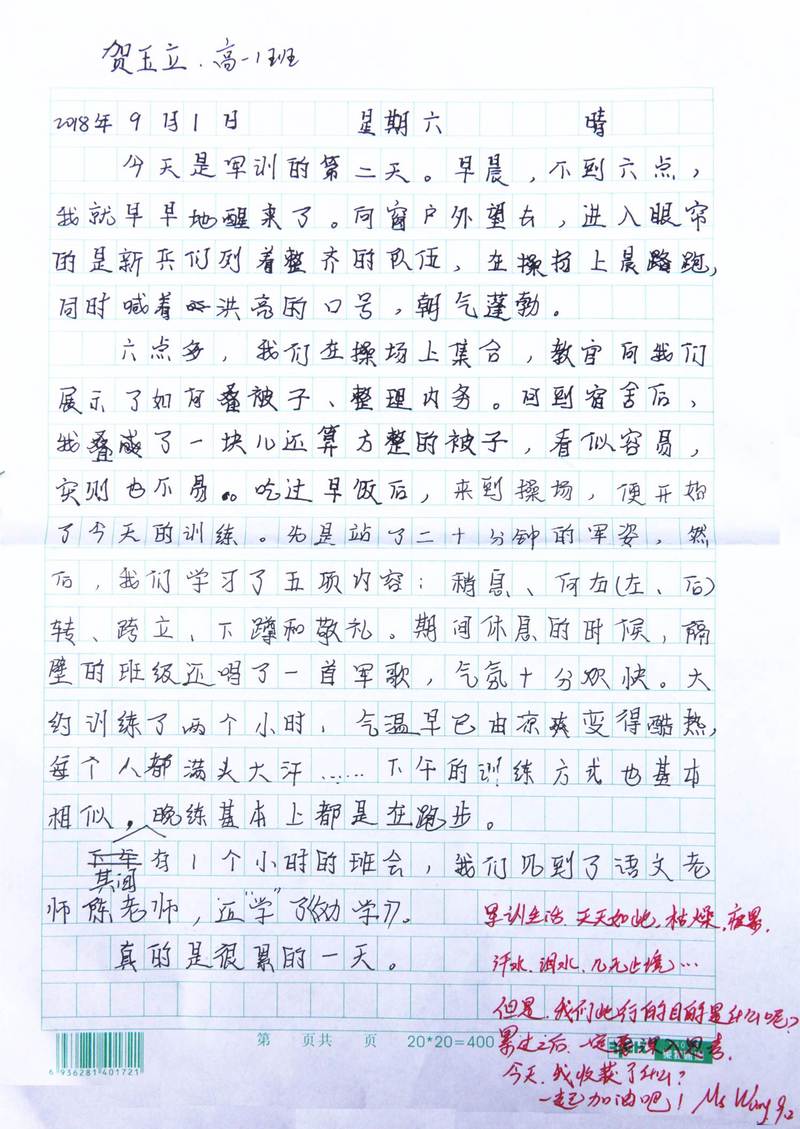 贺玉立.高一1班
2018年9月1日 星期六 晴
今天是军训的第二天。早晨,不到六点,
我就早早地醒来了。向窗户外望去,进入眼帘
的是新兵们列着整齐的队伍,在操场上晨跑,
同时喊着洪亮的口号,朝气蓬勃。
六点多,我们在操场上集合,教官向我们
展示了如何叠被子、整理内务。回到宿舍后,
我叠成了一块儿还算方整的被子,看似容易,
实则也不易。吃过早饭后,来到操场,便开始
了今天的训练。先是站了二十分钟的军姿,然
后,我们学习了五项内容:稍息、向右(左、后)
转、跨立、下蹲和敬礼。期间休息的时候,隔
壁的班级还唱了一首军歌,气氛十分欢快。大
约训练了两个小时,气温早已由凉爽变得酷热,
每个人都满头大汗……下午的训练方式也基本
相似,晚练基本上都是在跑步。
其间有1个小时的班会,我们见到了语文老
师陈老师,还“学”了《劝学》。
真的是很累的一天。
军训生活,天天如此,枯燥,疲累,
汗水,泪水,几无止境…
但是,我们此行的目的是什么呢?
累过之后,一定要深入思考,
今天,我收获了什么?
一起加油吧! Ms Wang 9.2
第 页共 页 20*20=400
6 936281 401721